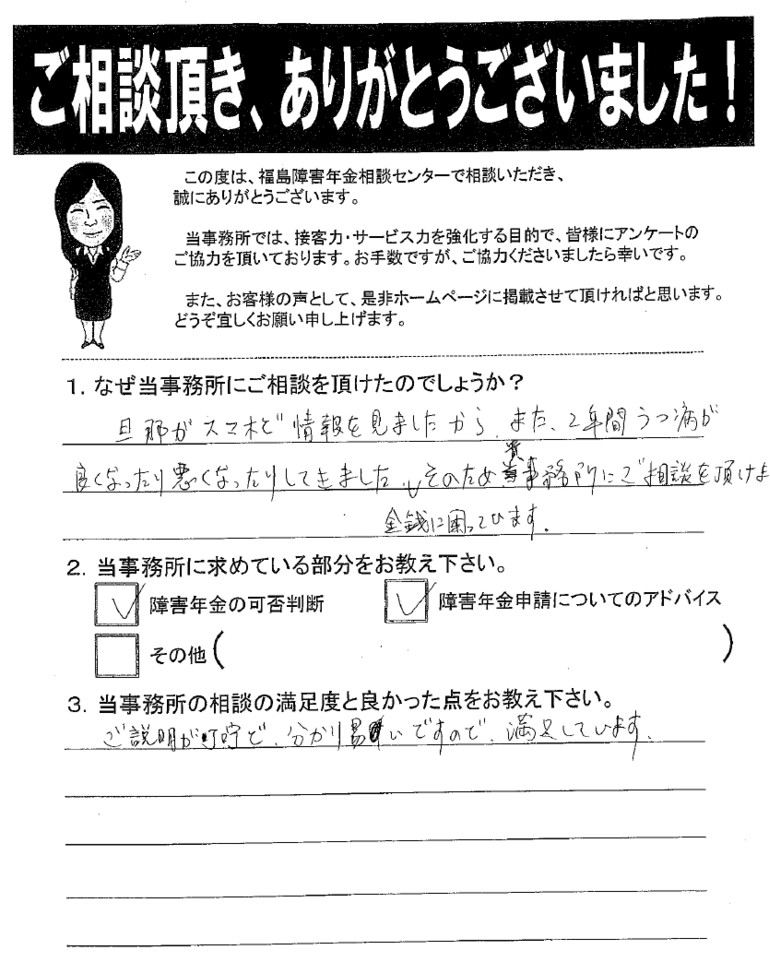 ご相談頂き、ありがとうございました！
この度は、福島障害年金相談センターで相談いただき、
誠にありがとうございます。
当事務所では、接客力・サービス力を強化する目的で、皆様にアンケートの
ご協力を頂いております。お手数ですが、ご協力くださいましたら幸いです。
また、お客様の声として、是非ホームページに掲載させて頂ければと思います。
どうぞ宜しくお願い申し上げます。
1. なぜ当事務所にご相談を頂けたのでしょうか？
旦那がスマホで情報を見ましたから、また、2年間うつ病が
良くなったり悪くなったりしてきました。そのため貴事務所にご相談を頂けま
金銭に困っています。
2. 当事務所に求めている部分をお教え下さい。
障害年金の可否判断 障害年金申請についてのアドバイス
その他（ ）
3. 当事務所の相談の満足度と良かった点をお教え下さい。
ご説明が で、分かり易いですので、満足しています。